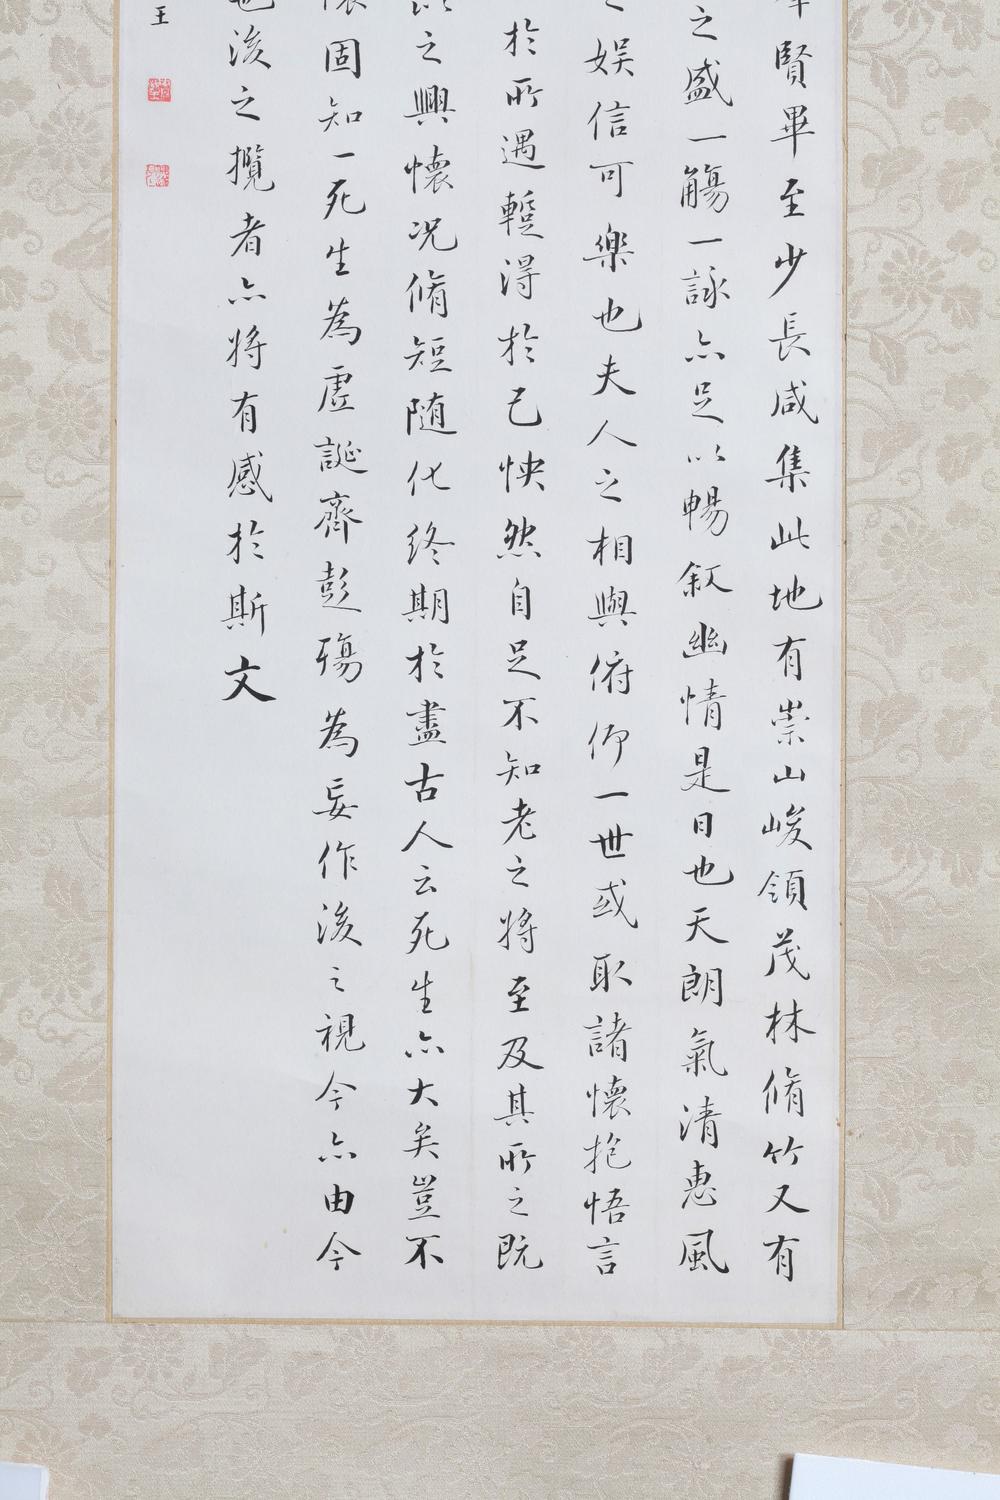 賢畢至少長咸集此地有崇山峻領茂林脩竹又有
之盛一觴一詠亦足以暢敘幽情是日也天朗氣清惠風
娛信可樂也夫人之相與俯仰一世或取諸懷抱悟言
於所遇蹔得於己怏然自足不知老之將至及其所之既
之興懷況脩短隨化終期於盡古人云死生亦大矣豈不
固知一死生為虛誕齊彭殤為妄作後之視今亦由今
後之攬者亦將有感於斯文
王